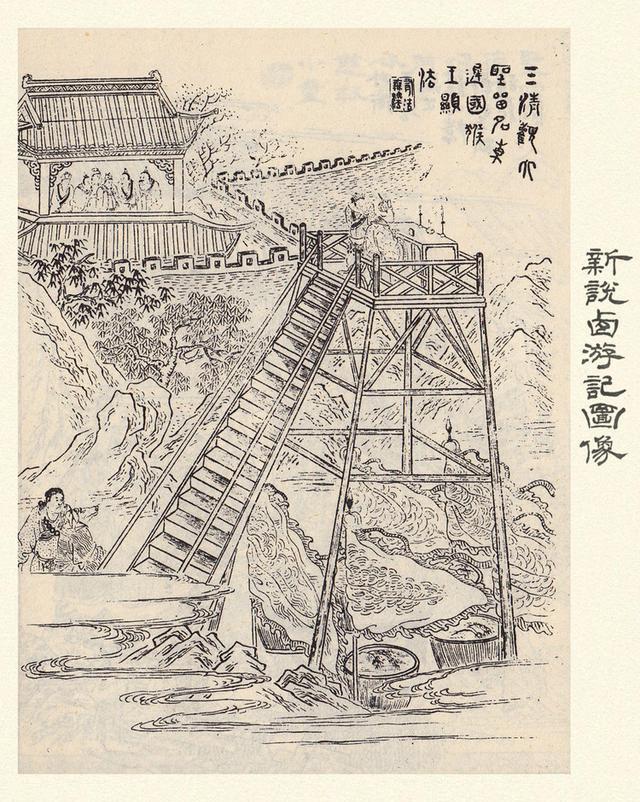 三清觀大
聖留名車
遲國猴
王顯
法
新說西游記圖像